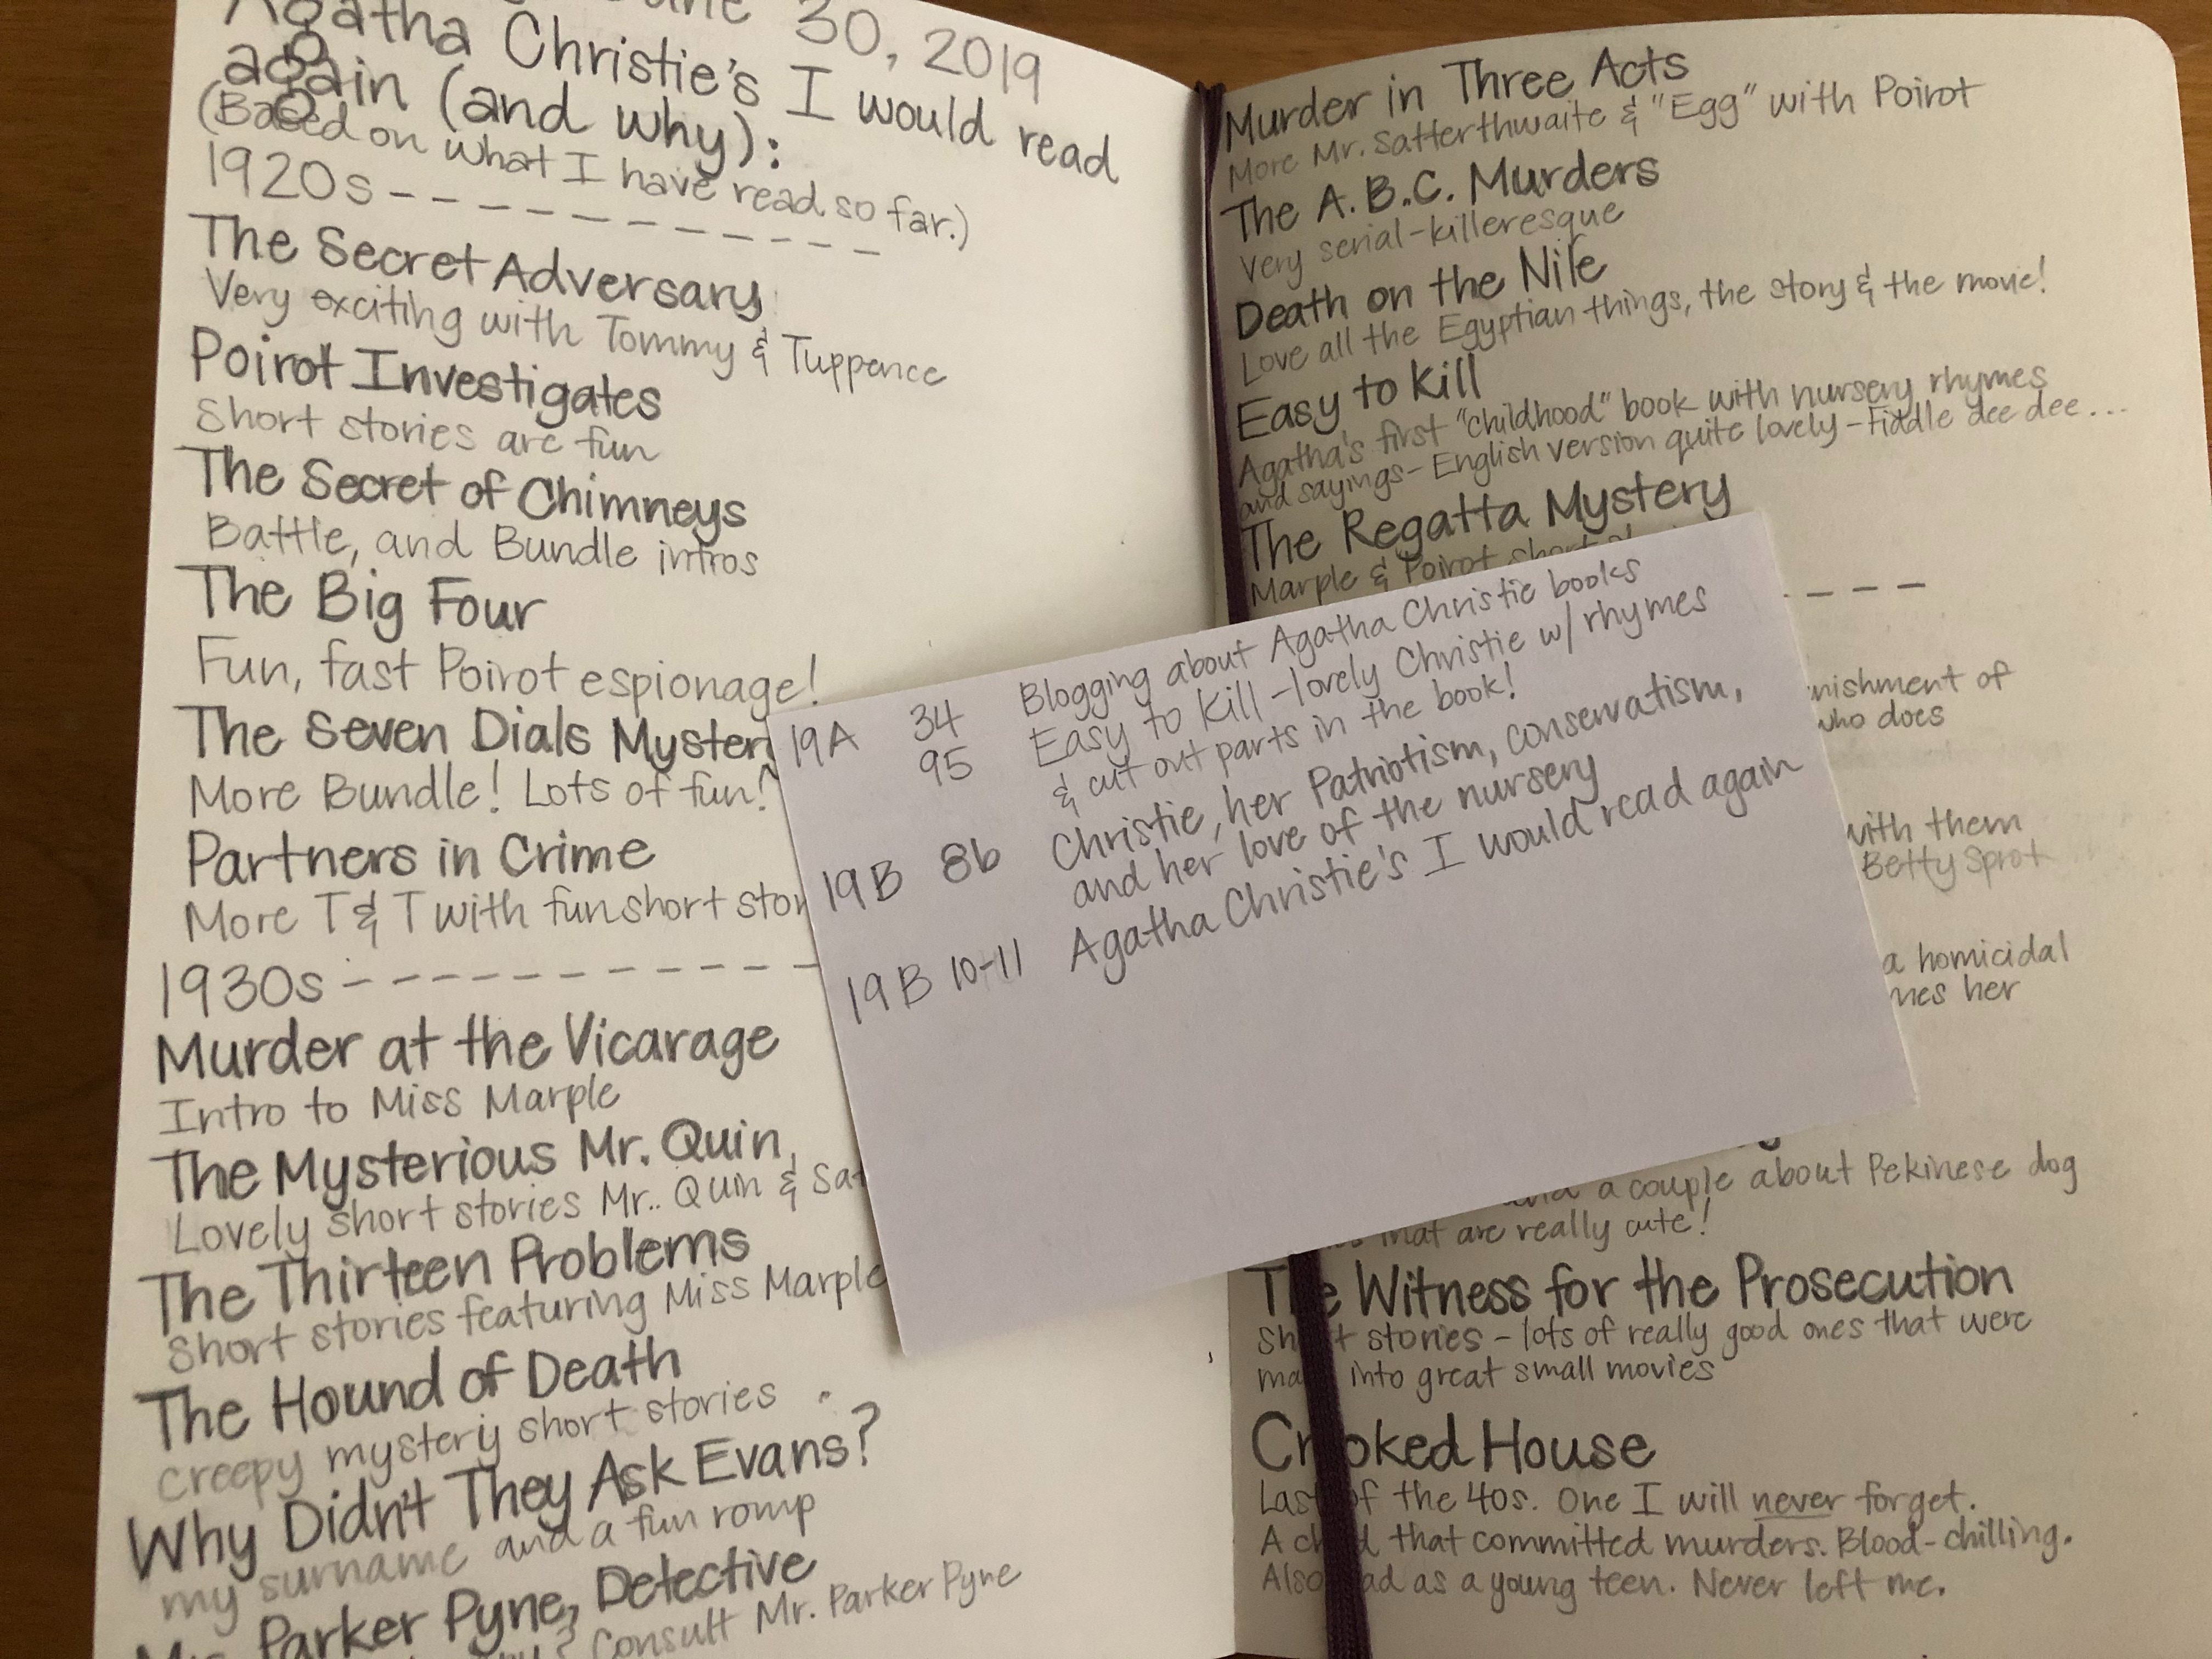 30, 2019
Agatha Christie's I would read
again (and why):
(Based on what I have read so far.)
1920s -----------
The Secret Adversary
Very exciting with Tommy & Tuppence
Poirot Investigates
Short stories are fun
The Secret of Chimneys
Battle, and Bundle intros
The Big Four
Fun, fast Poirot espionage!
The Seven Dials Mystery
More Bundle! Lots of fun!
Partners in Crime
More T & T with fun short
1930s -----------
Murder at the Vicarage
Intro to Miss Marple
The Mysterious Mr. Quin
Lovely short stories Mr.. Quin &
The Thirteen Problems
Short stories featuring Miss Marple
The Hound of Death
Creepy mystery short stories
Why Didn't They Ask Evans?
my surname and a fun romp
Parker Pyne, Detective
? Consult Mr. Parker Pyne
Murder in Three Acts
More Mr. Satterthwaite & "Egg" with Poirot
The A.B.C. Murders
Very serial-killeresque
Death on the Nile
Love all the Egyptian things, the story & the movie!
Easy to Kill
Agatha's first "childhood" book with nursery rhymes
and sayings - English version quite lovely - Fiddle dee dee...
The Regatta Mystery
Marple & Poirot short
----
of
who does
with them
Betty Sprot
a homicidal
her
a couple about Pekinese dog
that are really cute!
The Witness for the Prosecution
Short stories - lots of really good ones that were
into great small movies
Crooked House
Last of the 40s. One I will never forget.
A child that committed murders. Blood-chilling.
Also as a young teen. Never left me.
19A 34 Blogging about Agatha Christie books
95 Easy to Kill - lovely Christie w/ rhymes
& cut out parts in the book!
19B 8b Christie, her Patriotism, conservatism,
and her love of the nursery
19B 10-11 Agatha Christie's I would read again